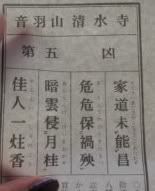 音羽山清水寺
第五 凶
家道未能昌
危危保禍殃
暗雲侵月桂
佳人一炷香